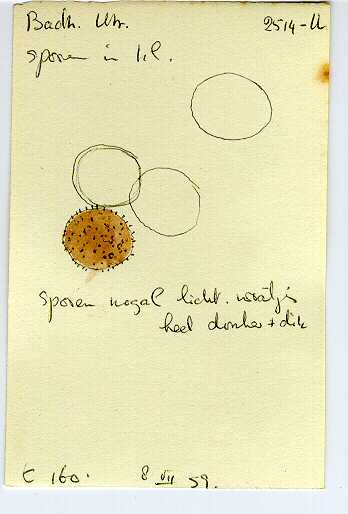 Badh. Utr. 2514-U
sporen in
sporen nogal licht. wratjes
heel donker + dik
C 160. 8 VII 59.